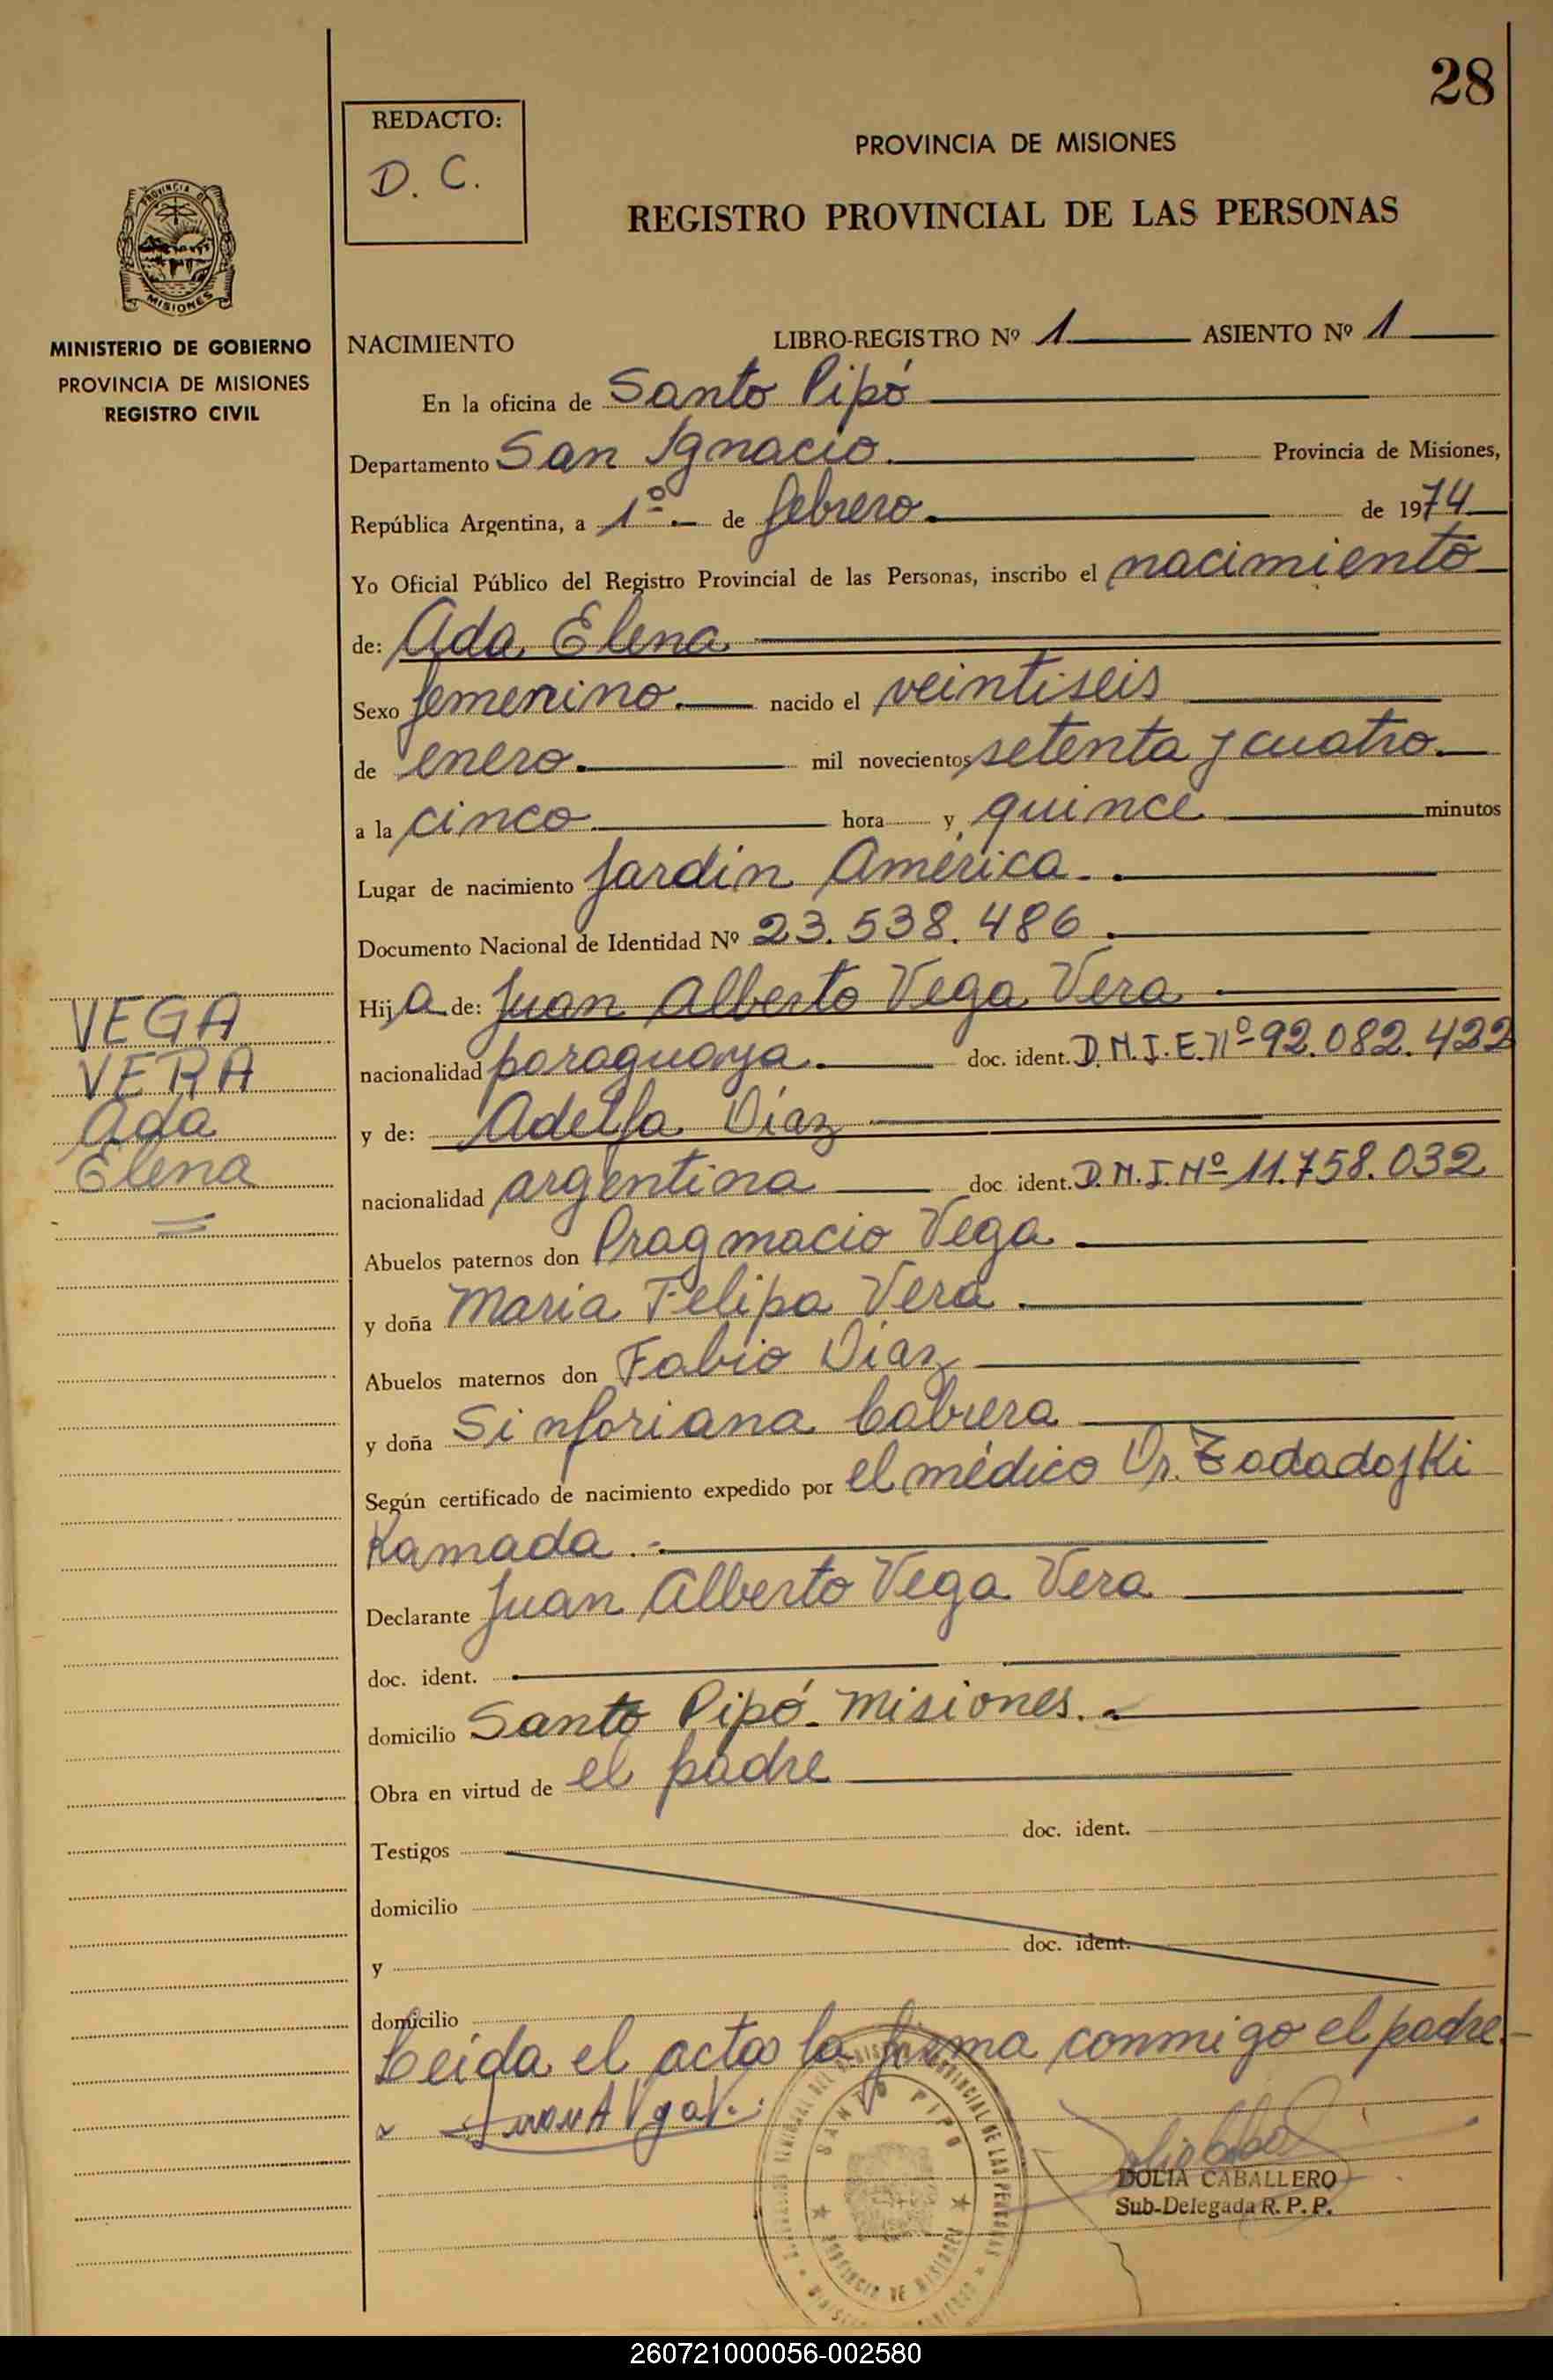 28
REDACTO:
D. C.
PROVINCIA DE MISIONES
REGISTRO PROVINCIAL DE LAS PERSONAS
PROVINCIA D
MISIONES
MINISTERIO DE GOBIERNO
PROVINCIA DE MISIONES
REGISTRO CIVIL
NACIMIENTO LIBRO-REGISTRO Nº 1 ASIENTO Nº 1
En la oficina de Santo Pipó
Departamento San Ignacio. Provincia de Misiones,
República Argentina, a 1º.- de febrero. de 1974
Yo Oficial Público del Registro Provincial de las Personas, inscribo el nacimiento
de: Ada Elena
Sexo femenino. nacido el veintiseis
de enero. mil novecientos setenta y cuatro.
a la cinco hora y quince minutos
Lugar de nacimiento Jardín América.
Documento Nacional de Identidad Nº 23.538.486.
Hija de: Juan Alberto Vega Vera
nacionalidad paraguaya. doc. ident. D.N.I.E. Nº 92.082.422
y de: Adelfa Díaz
nacionalidad argentina doc. ident. D.N.I. Nº 11.758.032
Abuelos paternos don Pragmacio Vega
y doña María Felipa Vera.
Abuelos maternos don Fabio Díaz
y doña Sinforiana Cabrera
Según certificado de nacimiento expedido por el médico Dr.
Kamada.-
Declarante Juan Alberto Vega Vera
doc. ident.
domicilio Santo Pipó - Misiones.
Obra en virtud de el padre
Testigos doc. ident.
domicilio
y doc. ident.
domicilio
Leída el acta la firma conmigo el padre.-
VEGA
VERA
Ada
Elena
SANTO PIPO
PROVINCIA DE MISIONES
DOLIA CABALLERO
Sub-Delegada R. P. P.
260721000056-002580